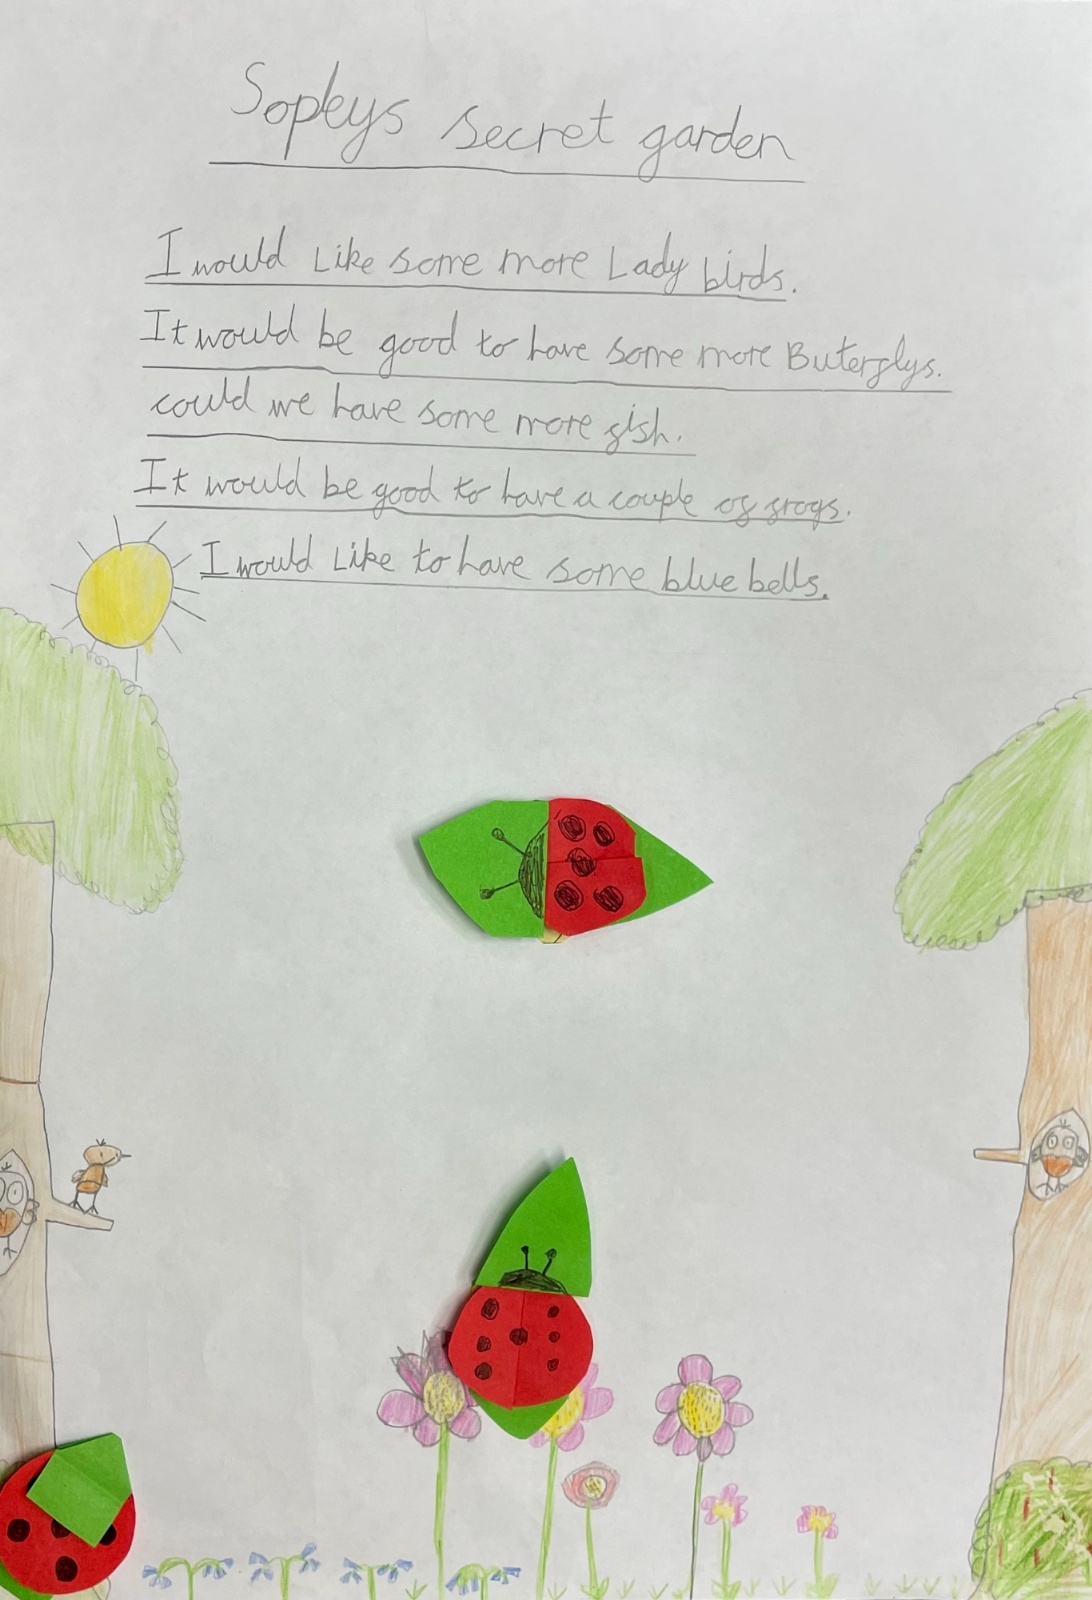 Sopleys secret garden
I would Like some more Lady birds.
It would be good to have some more Buterflys.
could we have some more fish.
It would be good to have a couple of frogs.
I would Like to have some blue bells.